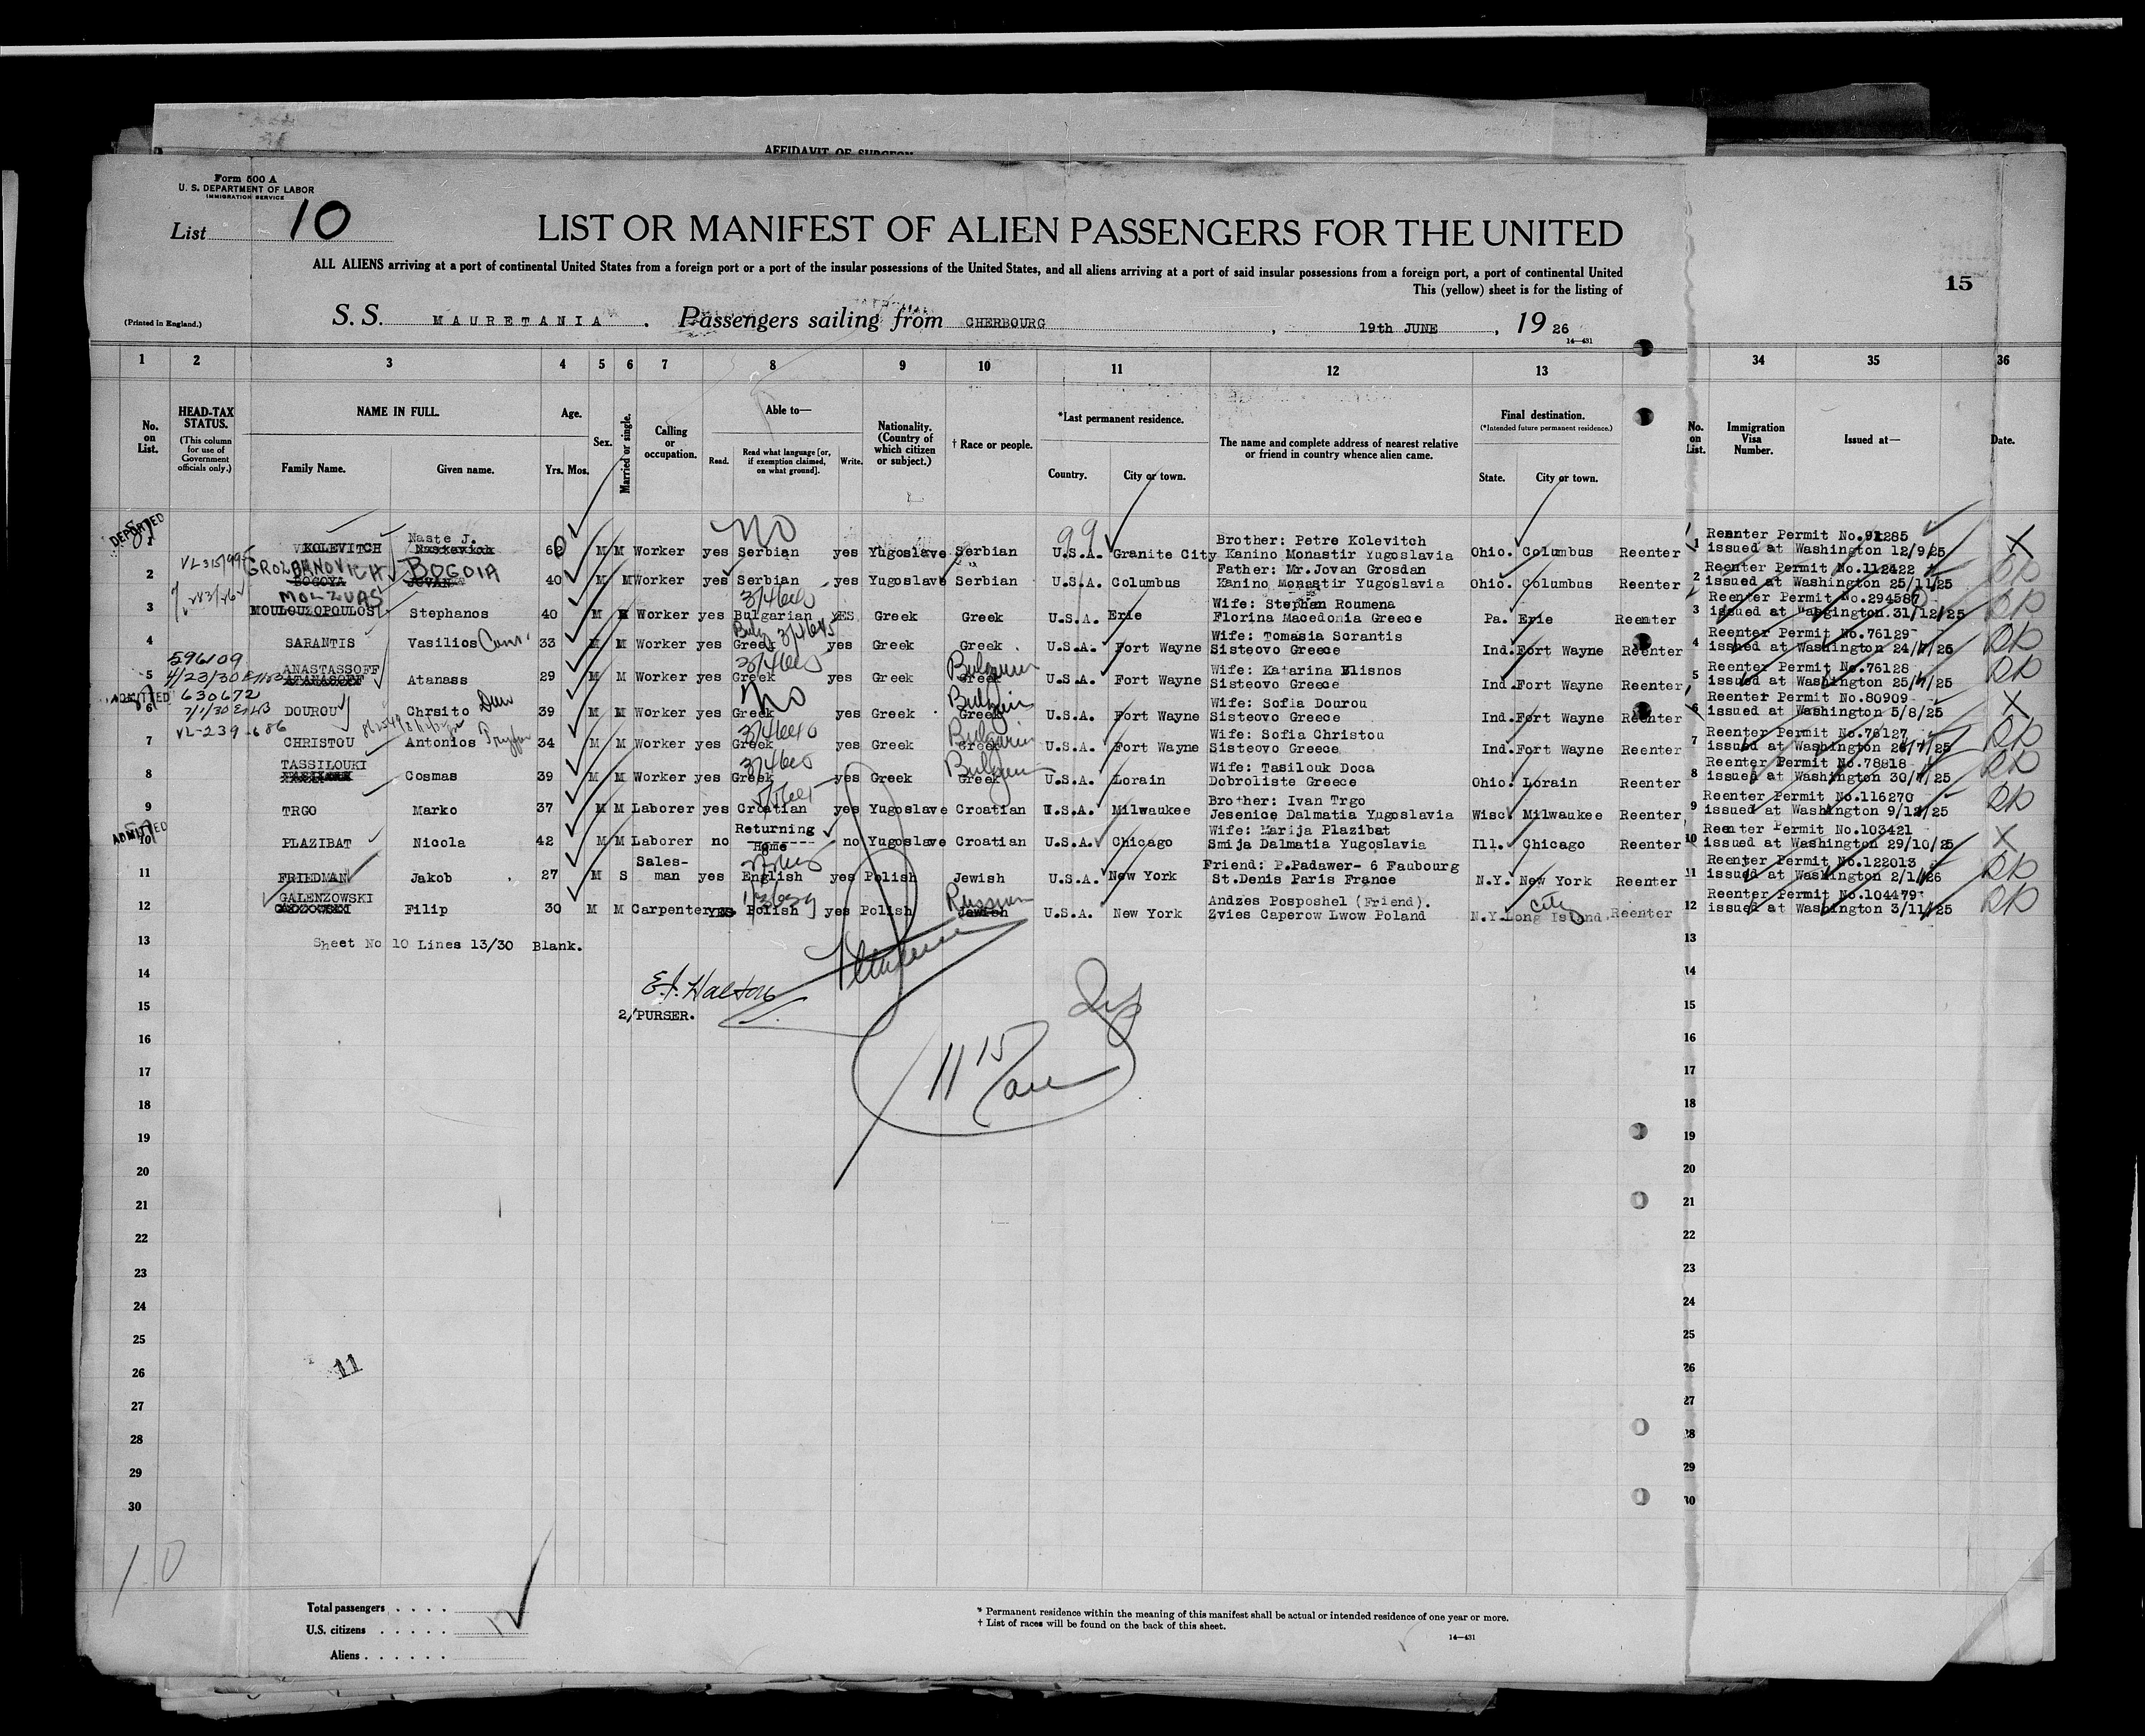 AFFIDAVIT OF SURGEON
Form 500 A
U. S. DEPARTMENT OF LABOR
IMMIGRATION SERVICE
List 10
LIST OR MANIFEST OF ALIEN PASSENGERS FOR THE UNITED
ALL ALIENS arriving at a port of continental United States from a foreign port or a port of the insular possessions of the United States, and all aliens arriving at a port of said insular possessions from a foreign port, a port of continental United
This (yellow) sheet is for the listing of
15
(Printed in England.)
S. S. MAURETANIA. Passengers sailing from CHERBOURG, 19th JUNE, 19 26
14—431
1 2 3 4 5 6 7 8 9 10 11 12 13 34 35 36
No. on List.
HEAD-TAX STATUS.
(This column for use of Government officials only.)
NAME IN FULL.
Family Name. Given name.
Age.
Yrs. Mos.
Sex.
Married or single.
Calling or occupation.
Able to—
Read. Read what language [or, if exemption claimed, on what ground]. Write.
Nationality. (Country of which citizen or subject.)
† Race or people.
*Last permanent residence.
Country. City or town.
The name and complete address of nearest relative or friend in country whence alien came.
Final destination.
(*Intended future permanent residence.)
State. City or town.
No. on List.
Immigration Visa Number.
Issued at—
Date.
DEPORTED
NO
99
Naste J.
1 KOLEVITCH M M Worker yes Serbian yes Yugoslave Serbian U.S.A. Granite City Brother: Petre Kolevitch Kanino Monastir Yugoslavia Ohio. Columbus Reenter 1 Reenter Permit No.91285 issued at Washington 12/9/25 X
GROZDANOVICH BOGOIA
2 BOGOYA JOVAN 40 M M Worker yes Serbian yes Yugoslave Serbian U.S.A. Columbus Father: Mr.Jovan Grosdan Kanino Monastir Yugoslavia Ohio. Columbus Reenter 2 Reenter Permit No.112422 issued at Washington 25/11/25
MOLZUAS
3 MOULOUZOPOULOS Stephanos 40 M M Worker yes Bulgarian YES Greek Greek U.S.A. Erie Wife: Stephan Roumena Florina Macedonia Greece Pa. Erie Reenter 3 Reenter Permit No.294587 issued at Washington.31/12/25
4 SARANTIS Vasilios 33 M M Worker yes Greek yes Greek Greek U.S.A. Fort Wayne Wife: Tomasia Sorantis Sisteovo Greece Ind. Fort Wayne Reenter 4 Reenter Permit No.76129 issued at Washington 24/7/25
596109
ANASTASSOFF
5 ATANASOFF Atanass 29 M M Worker yes Greek yes Greek Greek Bulgarian U.S.A. Fort Wayne Wife: Katarina Elisnos Sisteovo Greece Ind. Fort Wayne Reenter 5 Reenter Permit No.76128 issued at Washington 25/7/25
4/23/30
ADMITTED
630672
NO
6 DOUROU Chrsito 39 M M Worker yes Greek yes Greek Greek Bulgarian U.S.A. Fort Wayne Wife: Sofia Dourou Sisteovo Greece Ind. Fort Wayne Reenter 6 Reenter Permit No.80909 issued at Washington 5/8/25 X
7/1/30
VL-239-686
7 CHRISTOU Antonios 34 M M Worker yes Greek yes Greek Greek Bulgarian U.S.A. Fort Wayne Wife: Sofia Christou Sisteovo Greece Ind. Fort Wayne Reenter 7 Reenter Permit No.76127 issued at Washington 26/7/25
TASSILOUKI
8 Cosmas 39 M M Worker yes Greek yes Greek Greek Bulgarian U.S.A. Lorain Wife: Tasilouk Doca Dobroliste Greece Ohio. Lorain Reenter 8 Reenter Permit No.78818 issued at Washington 30/7/25
9 TRGO Marko 37 M M Laborer yes Croatian yes Yugoslave Croatian U.S.A. Milwaukee Brother: Ivan Trgo Jesenice Dalmatia Yugoslavia Wisc. Milwaukee Reenter 9 Reenter Permit No.116270 issued at Washington 9/12/25
ADMITTED
10 PLAZIBAT Nicola 42 M M Laborer no Returning Home no Yugoslave Croatian U.S.A. Chicago Wife: Marija Plazibat Smija Dalmatia Yugoslavia Ill. Chicago Reenter 10 Reenter Permit No.103421 issued at Washington 29/10/25 X
11 FRIEDMAN Jakob 27 M S Sales-man yes English yes Polish Jewish U.S.A. New York Friend: P.Padawer- 6 Faubourg St.Denis Paris France N.Y. New York Reenter 11 Reenter Permit No.122013 issued at Washington 2/1/26
GALENZOWSKI
12 Filip 30 M M Carpenter YES Polish yes Polish Jewish Russian U.S.A. New York Andzes Posposhel (Friend). Zvies Caperow Lwow Poland N.Y. Long Island. City Reenter 12 Reenter Permit No.104479 issued at Washington 3/11/25
13 Sheet No 10 Lines 13/30 Blank. 13
14 14
E.J. Halton
15 2/PURSER. 15
16 16
11 15
17 17
18 18
19 19
20 20
21 21
22 22
23 23
24 24
25 25
26 11 26
27 27
28 28
29 29
30 30
10
Total passengers
U.S. citizens
Aliens
* Permanent residence within the meaning of this manifest shall be actual or intended residence of one year or more.
† List of races will be found on the back of this sheet.
14—431